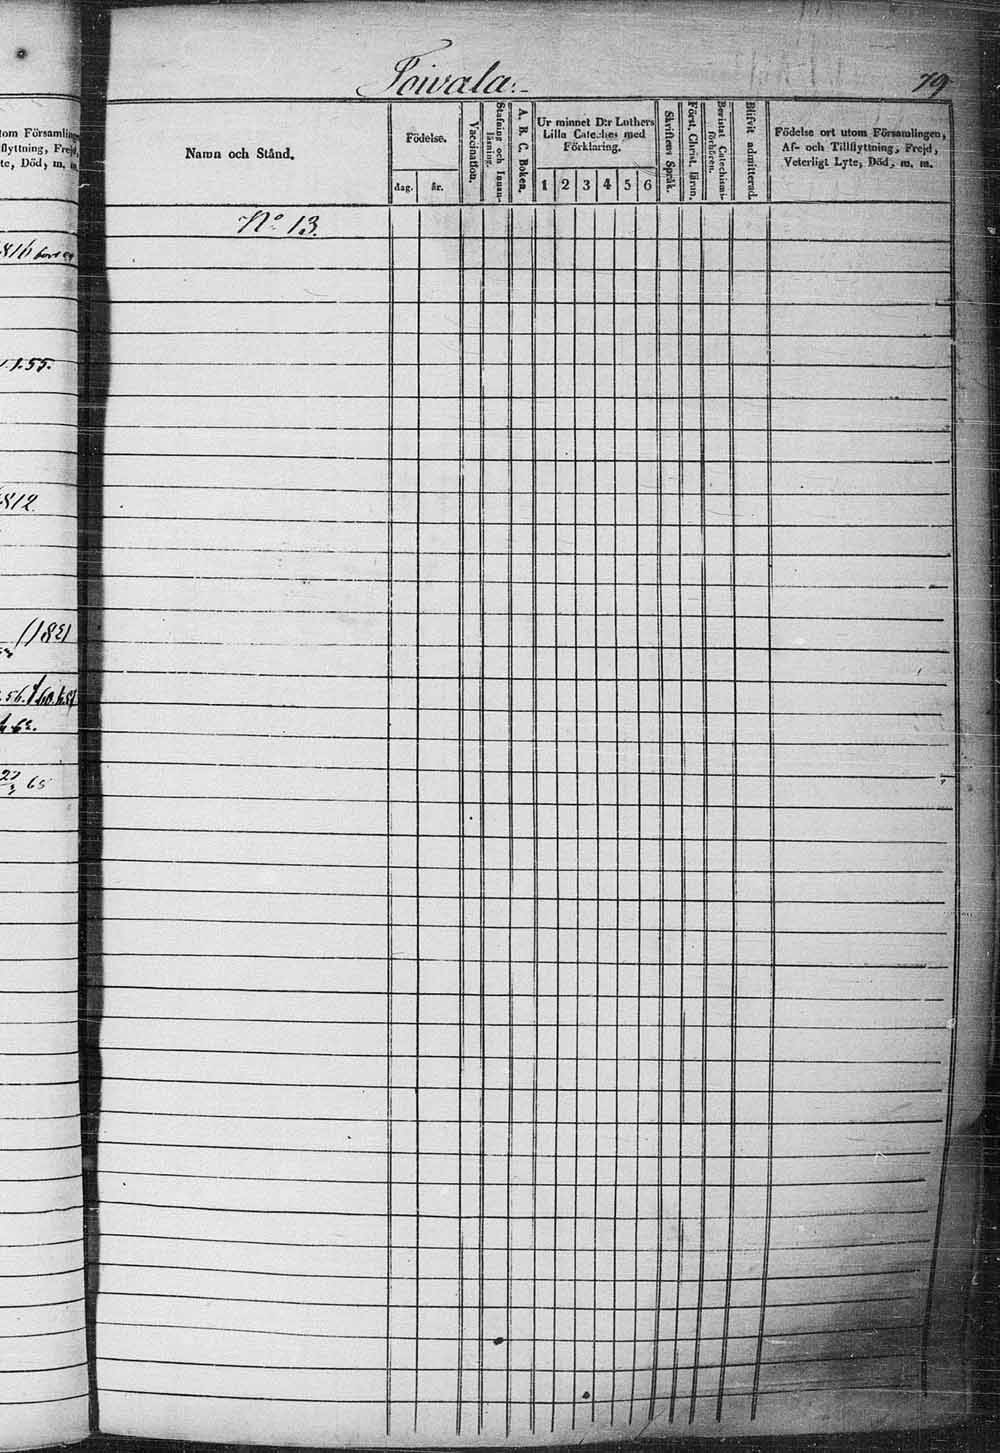 Toivala.
79
tom Församling
flyttning, Frejd,
te, Död, m. m.
Namn och Stånd.
Födelse.
dag.
år.
Vaccination.
Stafning och Innan-
läsning.
A. B. C. Boken.
Ur minnet D:r Luthers
Lilla Cateches med
Förklaring.
1 2 3 4 5 6
Skriftens Språk.
Först. Christ. läran.
Bevistat Catechismi-
förhören.
Blifvit admitterad.
Födelse ort utom Församlingen,
Af- och Tillflyttning, Frejd,
Veterligt Lyte, Död, m. m.
No 13.
816
1.55.
812
65